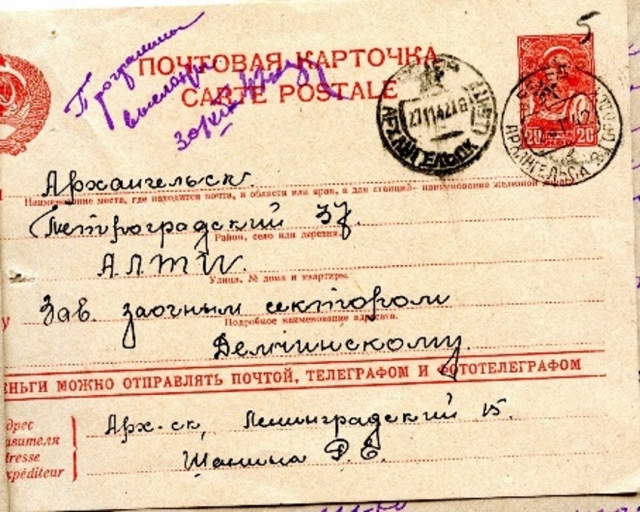 5
Программы
высланы
ПОЧТОВАЯ КАРТОЧКА
CARTE POSTALE
АРХАНГЕЛЬСК
27 11 42
20 20
Архангельск.
Наименование места, где находится почта, и области или края, а для станций- наименование железной
Петроградский 37.
Район, село или деревня.
АЛТИ.
Улица, № дома и квартиры.
Зав. заочным сектором
Подробное наименование адресата.
Демчинскому.
ЕНЬГИ МОЖНО ОТПРАВЛЯТЬ ПОЧТОЙ, ТЕЛЕГРАФОМ И ФОТОТЕЛЕГРАФОМ
дрес
авителя
dresse
xpéditeur
Арх-ск, Ленинградский 15.
Шанина Р. Е.